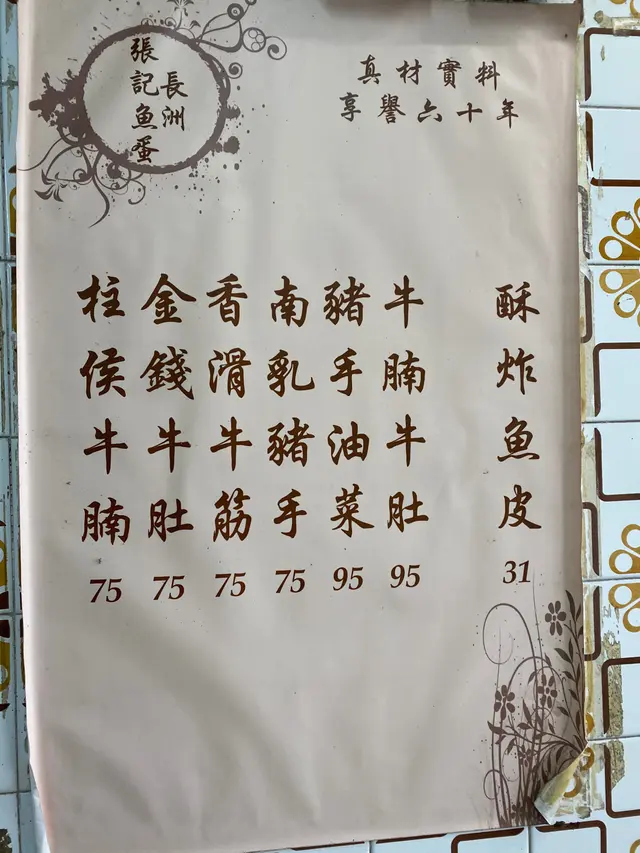 長洲
張記魚蛋
真材實料
享譽六十年
酥炸魚皮 31
牛腩牛肚 95
豬手油菜 95
南乳豬手 75
香滑牛筋 75
金錢牛肚 75
柱侯牛腩 75